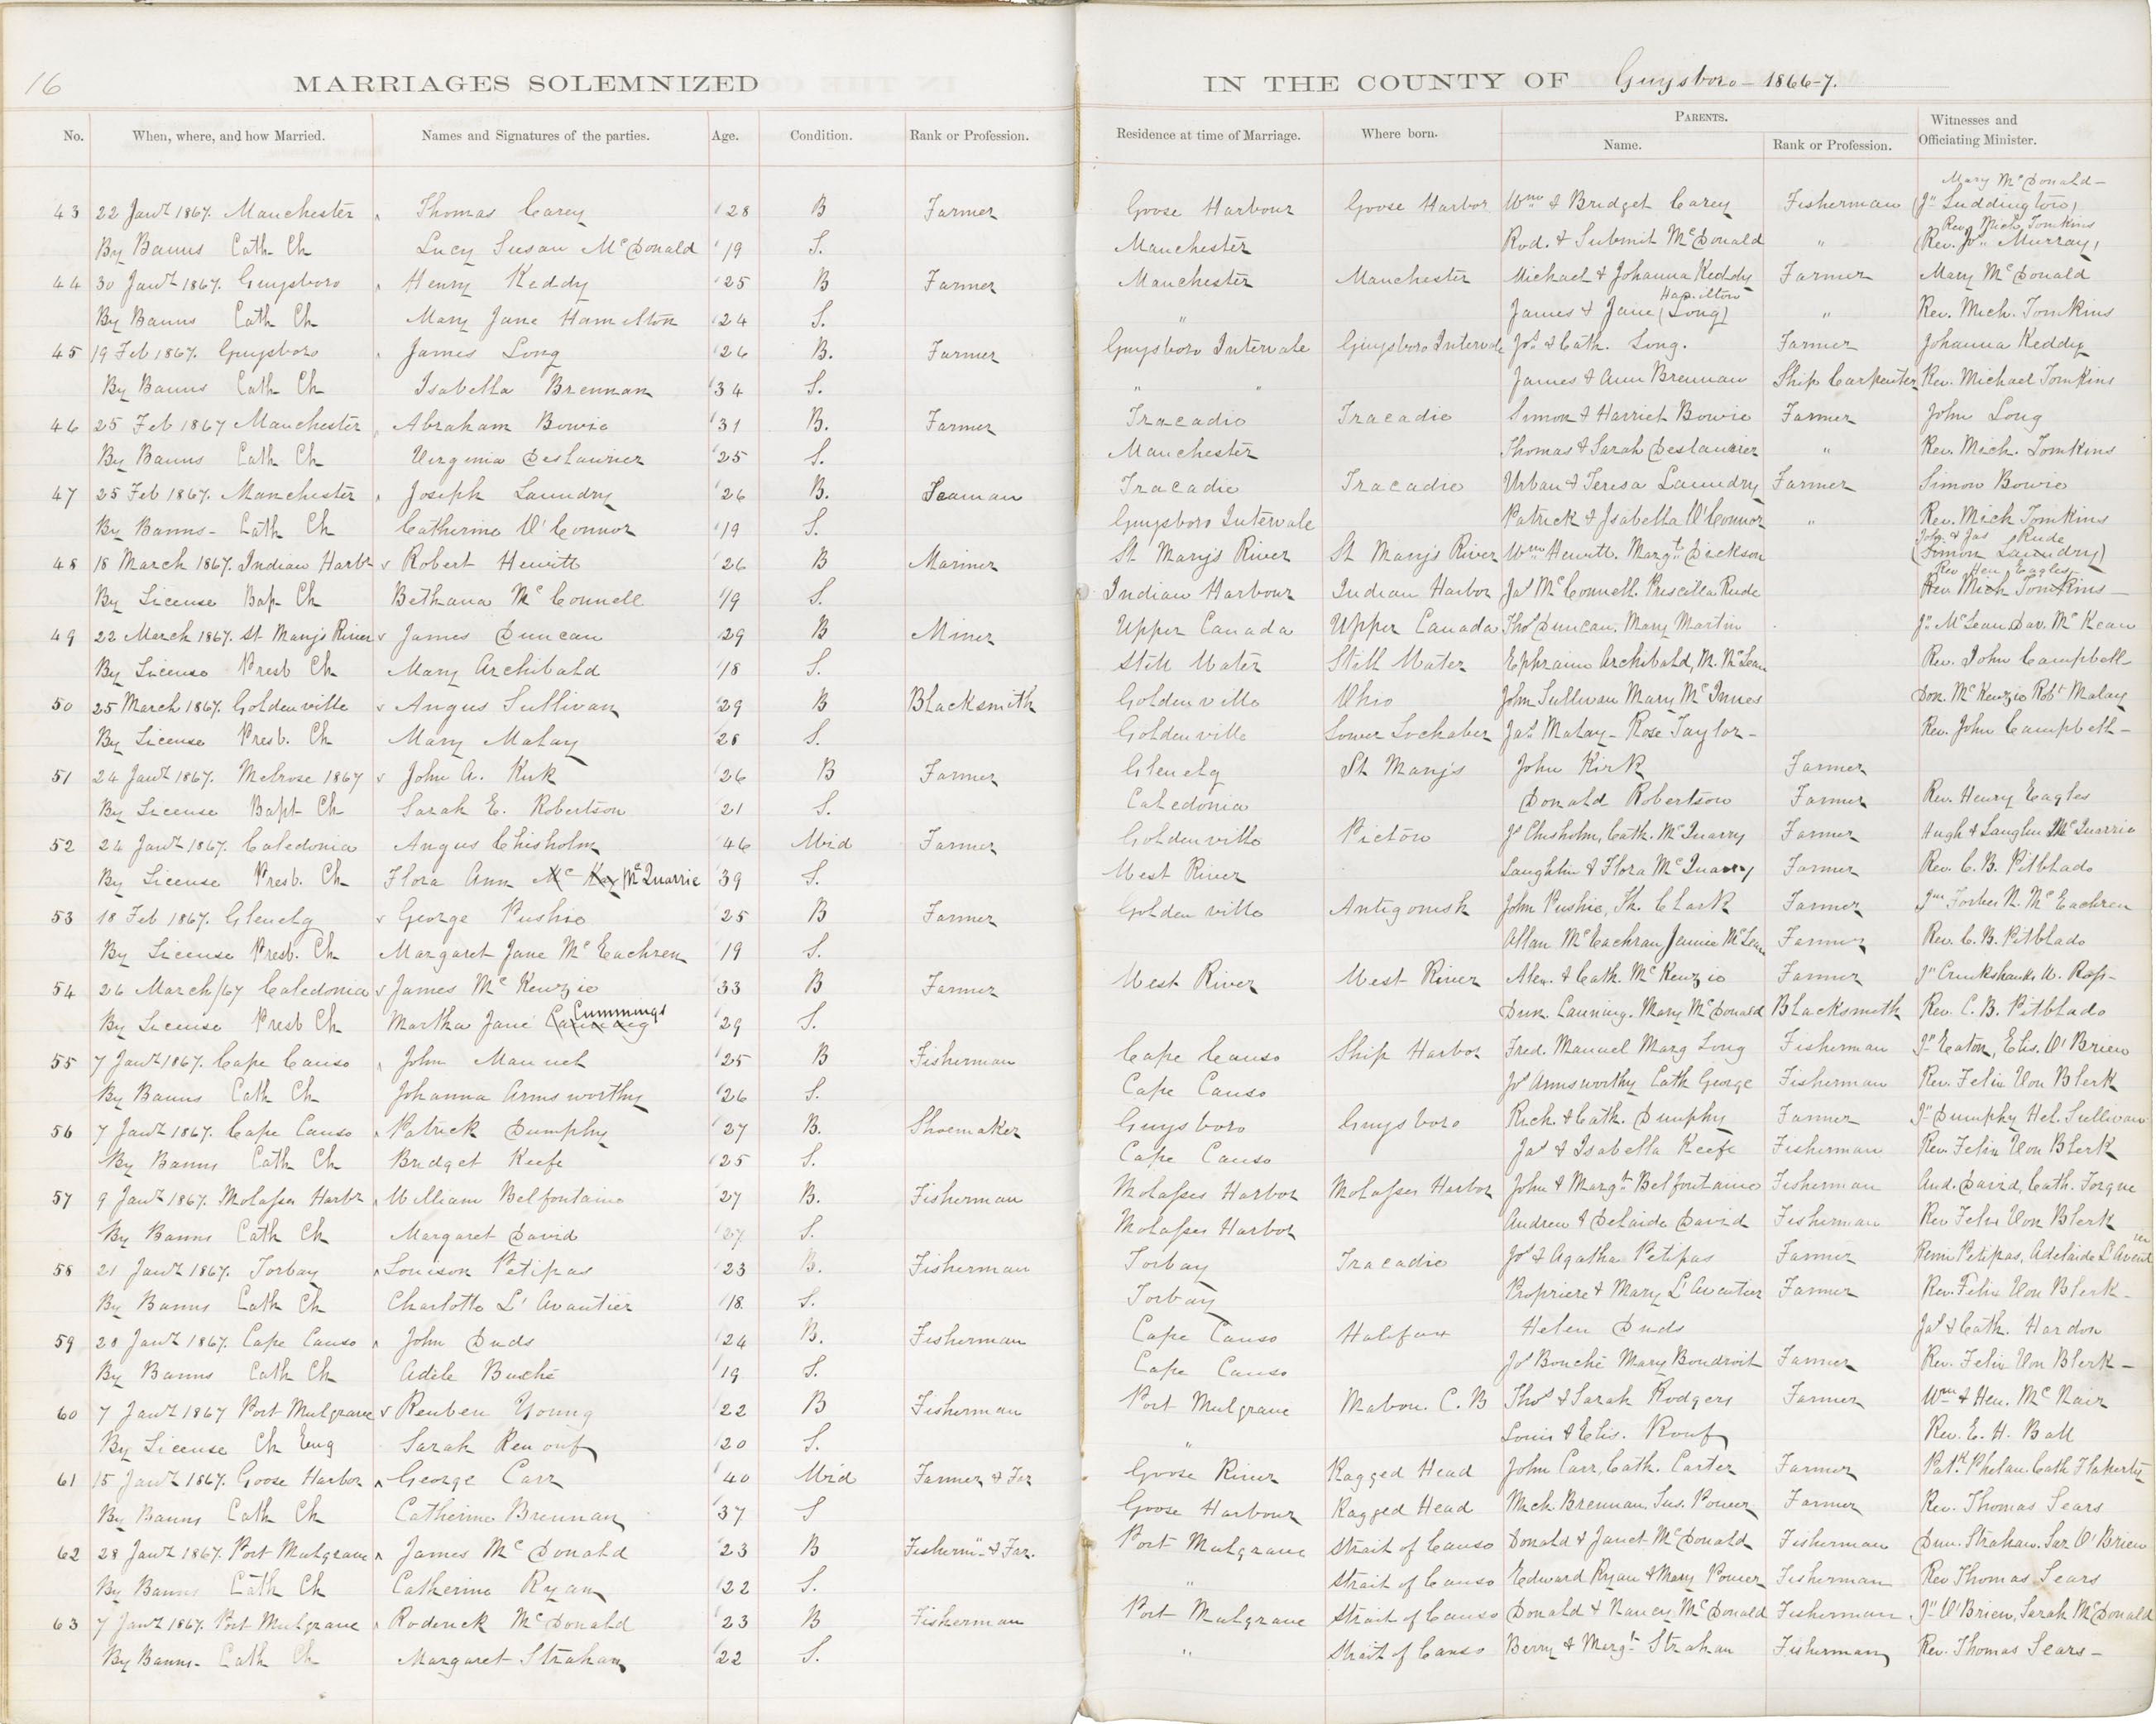 16
MARRIAGES SOLEMNIZED IN THE COUNTY OF Guysboro - 1866-7.
No. When, where, and how Married. Names and Signatures of the parties. Age. Condition. Rank or Profession. Residence at time of Marriage. Where born. PARENTS. Name. Rank or Profession. Witnesses and Officiating Minister.
Mary McDonald -
43 22 Jany 1867. Manchester Thomas Carey 28 B Farmer Goose Harbour Goose Harbor Wm & Bridget Carey Fisherman (Jn Luddington)
Rev Mich Tomkins
By Banns Cath Ch Lucy Susan McDonald 19 S. Manchester Rod. & Submit McDonald " (Rev. Jn Murray)
44 30 Jany 1867. Guysboro Henry Keddy 25 B Farmer Manchester Manchester Michael & Johanna Keddy Farmer Mary McDonald
Hamilton
By Banns Cath Ch Mary Jane Hamilton 24 S. " James & Jane (Long) " Rev. Mich. Tomkins
45 19 Feb 1867. Guysboro James Long 26 B. Farmer Guysboro Intervale Guysboro Intervale Jos & Cath. Long. Farmer Johanna Keddy
By Banns Cath Ch Isabella Brennan 34 S. " " James & Ann Brennan Ship Carpenter Rev. Michael Tomkins
46 25 Feb 1867 Manchester Abraham Bowie 31 B. Farmer Tracadie Tracadie Simon & Harriet Bowie Farmer John Long
By Banns Cath Ch Virginia Deslaurier 25 S. Manchester Thomas & Sarah Deslaurier " Rev. Mich. Tomkins
47 25 Feb 1867. Manchester Joseph Laundry 26 B. Seaman Tracadie Tracadie Urban & Teresa Laundry Farmer Simon Bowie
By Banns - Cath Ch Catherine O'Connor 19 S. Guysboro Intervale Patrick & Isabella O'Connor " Rev. Mich Tomkins
John & Jas Rude
48 18 March 1867. Indian Harbr Robert Hewitt 26 B Mariner St Mary's River St Mary's River Wm Hewitt. Margt Dickson (Simon Laundry)
Rev Hen Eagles
By License Bap. Ch Bethana McConnell 19 S. Indian Harbour Indian Harbor Jas McConnell. Priscilla Rude Rev Mich Tomkins -
49 22 March 1867. St Mary's River James Duncan 29 B Miner Upper Canada Upper Canada Thos Duncan. Mary Martin Jn McLean Dav. McKean
By License Presb Ch Mary Archibald 18 S. Still Water Still Water Ephraim Archibald, M. McLean Rev. John Campbell
50 25 March 1867. Goldenville Angus Sullivan 29 B Blacksmith Goldenville Ohio John Sullivan Mary McInnes Don. McKenzie Robt Malay
By License Presb. Ch Mary Malay 28 S. Goldenville Lower Lochaber Jas Malay - Rose Taylor - Rev. John Campbell -
51 24 Jany 1867. Melrose 1867 John A. Kirk 26 B Farmer Glenelg St Mary's John Kirk Farmer
By License Bapt Ch Sarah E. Robertson 21 S. Caledonia Donald Robertson Farmer Rev. Henry Eagles
52 24 Jany 1867. Caledonia Angus Chisholm 46 Wid Farmer Goldenville Pictou Js Chisholm, Cath. McQuarry Farmer Hugh & Laughlin McQuarrie
By License Presb. Ch Flora Ann Mc Kay McQuarrie 39 S. West River Laughlin & Flora McQuarry Farmer Rev. C. B. Pitblado
53 18 Feb 1867. Glenelg George Pushie 25 B Farmer Goldenville Antigonish John Pushie, Th. Clark Farmer Jno Forbes N. McEachren
By License Presb. Ch Margaret Jane McEachren 19 S. Allan McEachran Jannie McLean Farmer Rev. C. B. Pitblado
54 26 March/67 Caledonia James McKenzie 33 B Farmer West River West River Alex. & Cath. McKenzie Farmer Jn Crookshanks W. Ross -
Cummings
By License Presb Ch Martha Jane Canning 29 S. Dun. Canning. Mary McDonald Blacksmith Rev. C. B. Pitblado
55 7 Jany 1867. Cape Canso John Manuel 25 B Fisherman Cape Canso Ship Harbor Fred. Manuel Marg Long Fisherman Jn Eaton, Elis. O'Brien
By Banns Cath Ch Johanna Armsworthy 26 S. Cape Canso Js Armsworthy Cath George Fisherman Rev. Felix Von Blerk
56 7 Jany 1867. Cape Canso Patrick Dumphy 27 B. Shoemaker Guysboro Guysboro Rich. & Cath. Dumphy Farmer Jn Dumphy Hel. Sullivan
By Banns Cath Ch Bridget Keefe 25 S. Cape Canso Jas & Isabella Keefe Fisherman Rev. Felix Von Blerk
57 9 Jany 1867. Molasses Harbr William Belfontaine 27 B. Fisherman Molasses Harbor Molasses Harbor John & Margt Belfontaine Fisherman And. David, Cath. Forgue
By Banns Cath Ch Margaret David 27 S. Molasses Harbor Andrew & Delaide David Fisherman Rev Felix Von Blerk
58 21 Jany 1867. Torbay Louison Petipas 23 B. Fisherman Torbay Tracadie Js & Agatha Petipas Farmer Remi Petipas, Adelaide L'Aventier
By Banns Cath Ch Charlotte L'Avantier 18. S. Torbay Propriere & Mary L'Aventier Farmer Rev. Felix Von Blerk -
59 28 Jany 1867. Cape Canso John Duds 24 B. Fisherman Cape Canso Halifax Helen Duds Jas & Cath. Hardon
By Banns Cath Ch Adele Bushé 19 S. Cape Canso Js Bouché Mary Boudroit Farmer Rev. Felix Von Blerk -
60 7 Jany 1867 Port Mulgrave Reuben Young 22 B Fisherman Port Mulgrave Mabou. C. B Thos & Sarah Rodgers Farmer Wm & Hen. McNair
By License Ch Eng Sarah Renouf 20 S. " Louis & Elis. Rouf Rev. E. H. Ball
61 15 Jany 1867. Goose Harbor George Carr 40 Wid Farmer & Far Goose River Ragged Head John Carr, Cath. Carter Farmer Patk Phelan. Cath Flaherty
By Banns Cath Ch Catherine Brennan 37 S Goose Harbour Ragged Head Mich Brennan, Sus. Power Farmer Rev. Thomas Sears
62 28 Jany 1867. Port Mulgrave James McDonald 23 B Fisherm & Far. Port Mulgrave Strait of Canso Donald & Janet McDonald Fisherman Dun. Strahan. Sar O'Brien
By Banns Cath Ch Catherine Ryan 22 S. " Strait of Canso Edward Ryan & Mary Power Fisherman Rev Thomas Sears
63 7 Jany 1867. Port Mulgrave Roderick McDonald 23 B Fisherman Port Mulgrave Strait of Canso Donald & Nancy McDonald Fisherman Jn O'Brien, Sarah McDonald
By Banns - Cath Ch Margaret Strahan 22 S. " Strait of Canso Berry & Margt Strahan Fisherman Rev. Thomas Sears -